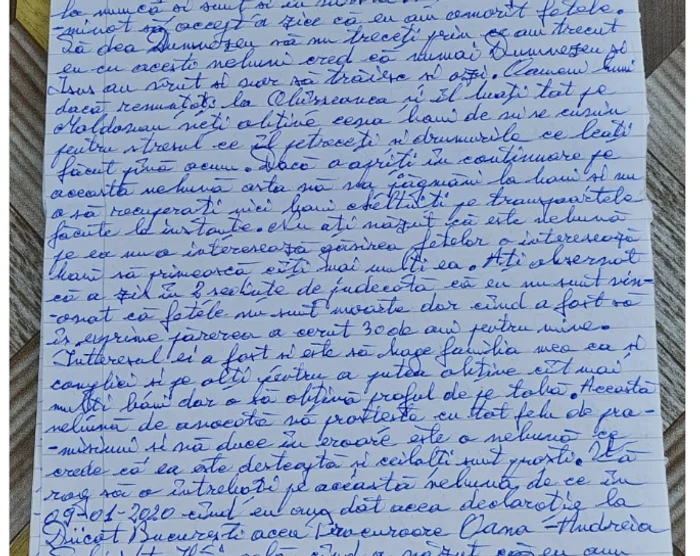 la muncă si sunt si in
-minat să accept a zice că eu am omorît fetele.
Să dea Dumnezeu să nu treceți prin ce am trecut
eu cu acesti nebuni cred că numai Dumnezeu si
Isus au vrut si vor să trăiesc si azi. Oameni buni
dacă renuntați la Chirseanca si îl luați tot pe
Moldovan veți obține ceva bani de mi se cuvin
pentru stresul ce îl petreceti si drumurile ce leați
făcut pînă acum. Dacă o apăriti în continuare pe
această nebună asta nă va păgmâni la bani si nu
o să recuperați nici bani cheltuiti pe transportele
făcute la instante. Nu ați văzut că este nebună
pe ea nu o interesează găsirea fetelor o interesează
bani să primească cîti mai multi ea. Ati observat
că a zis în 2 sedinte de judecată că eu nu sunt vin-
-ovat că fetele nu sunt moarte dar cînd a fost să
îs exprime părerea a cerut 30 de ani pentru mine.
Intteresul ei a fost si este să bage familia mea ca si
complici si pe alti pentru a putea obtine cît mai
multi bani dar o să obtină praful de pe tobă. Această
nebună de avocată vă prosteste cu tot felu de pro-
-misiuni si vă duce în eroare este o nebună ce
crede că ea este desteaptă si ceilalti sunt prosti. Vă
rog să o întrebati pe această nebună de ce în
09-01-2020 cînd eu am dat acea declaratie la
Diicot Bucuresti acea Procuroare Oana-Andreia
cînd a văzut că eu am